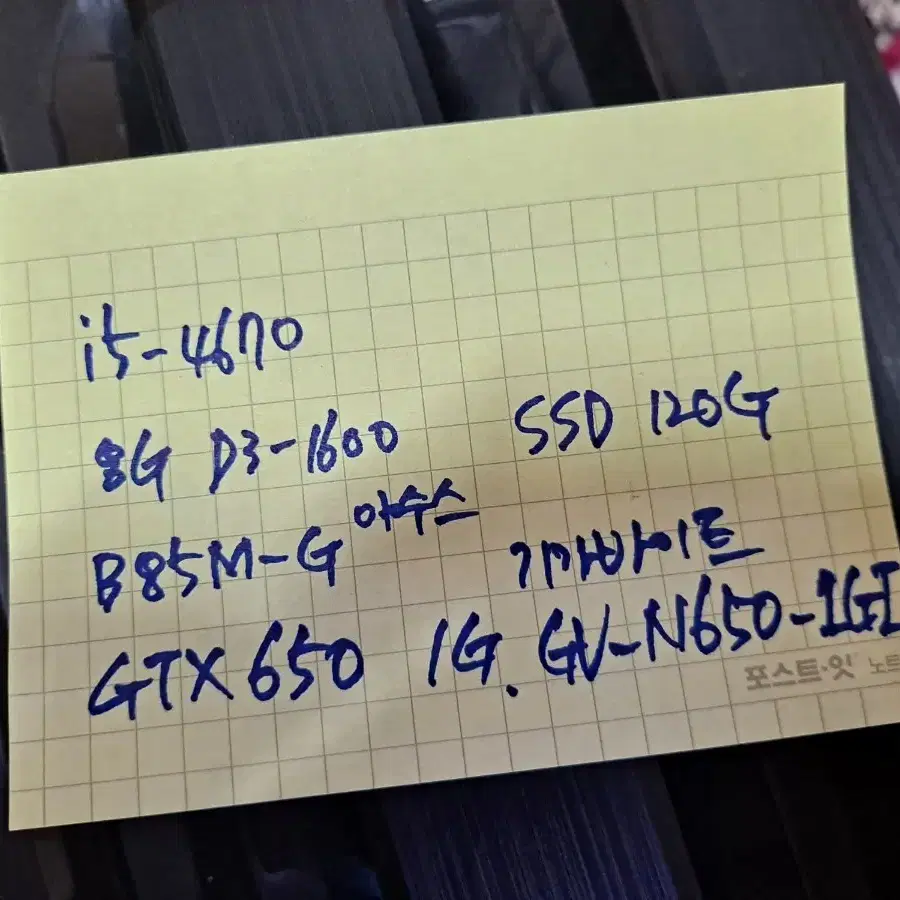 i5-4670
8G D3-1600 SSD 120G
B85M-G 아수스
기가바이트
GTX 650 1G. GV-N650-1GI
포스트·잇 노트